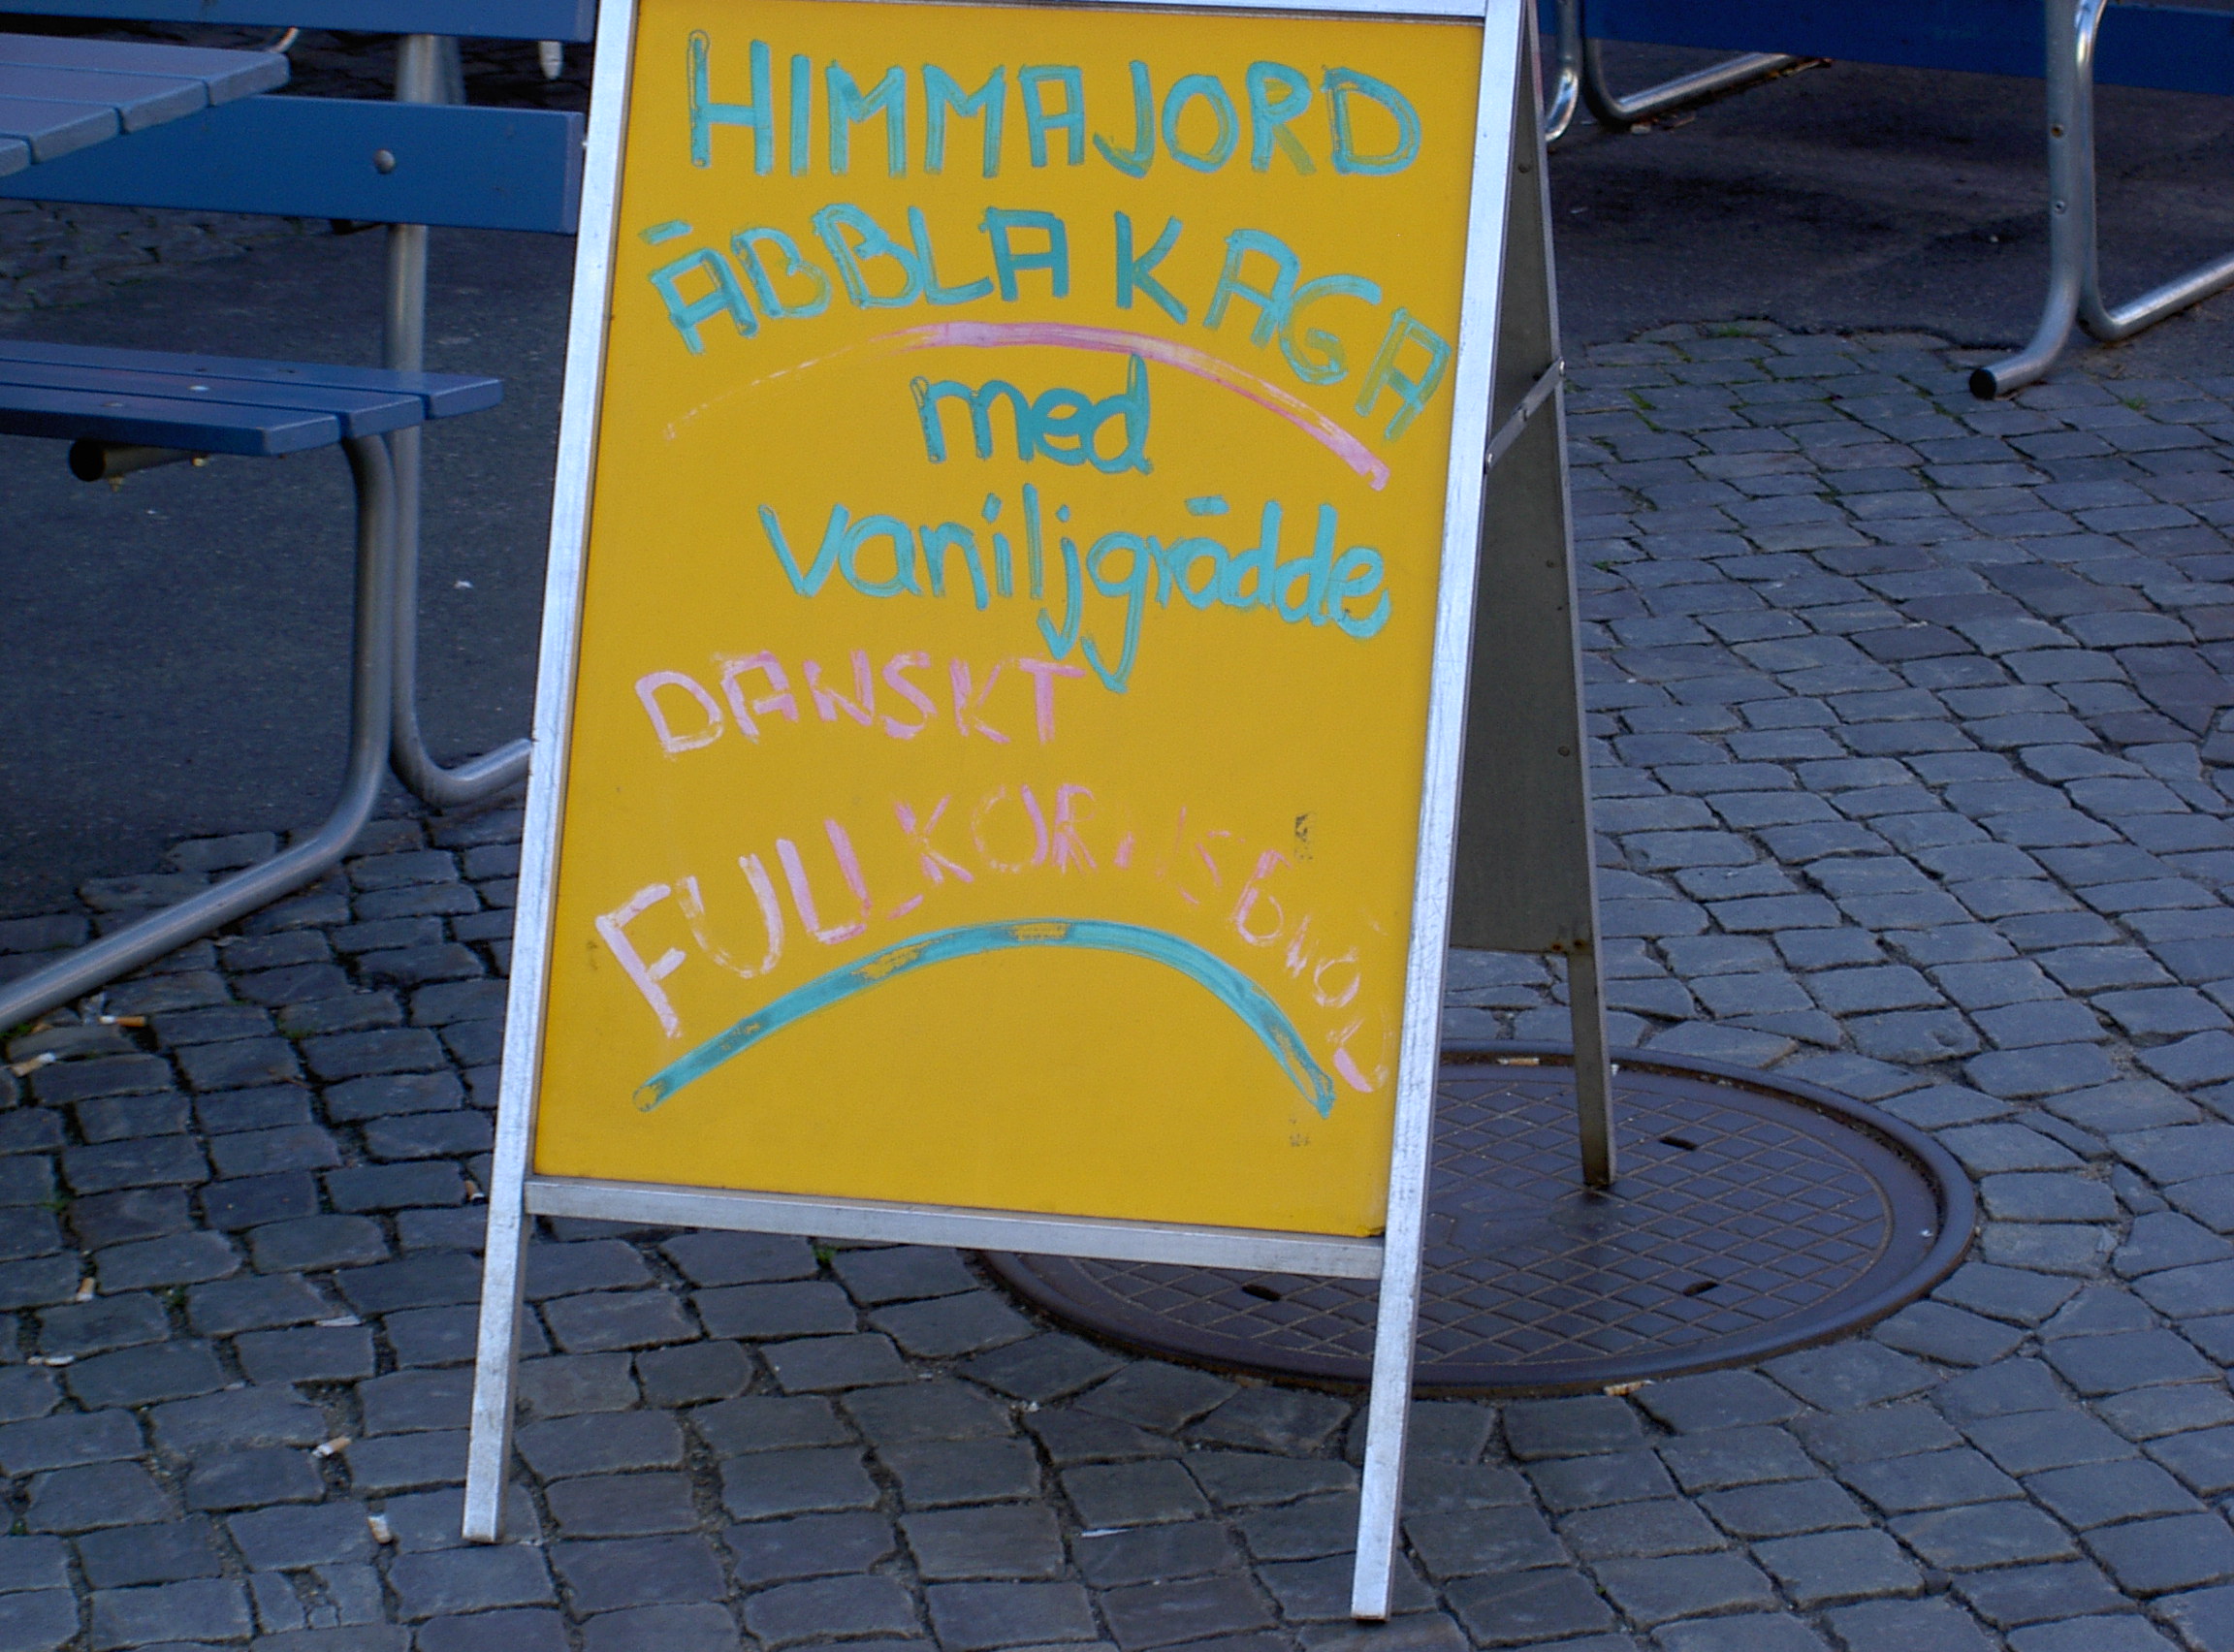 HIMMAJORD
ÄBBLAKAGA
med
vaniljgrädde
DANSKT
FULLKORNSBRÖD